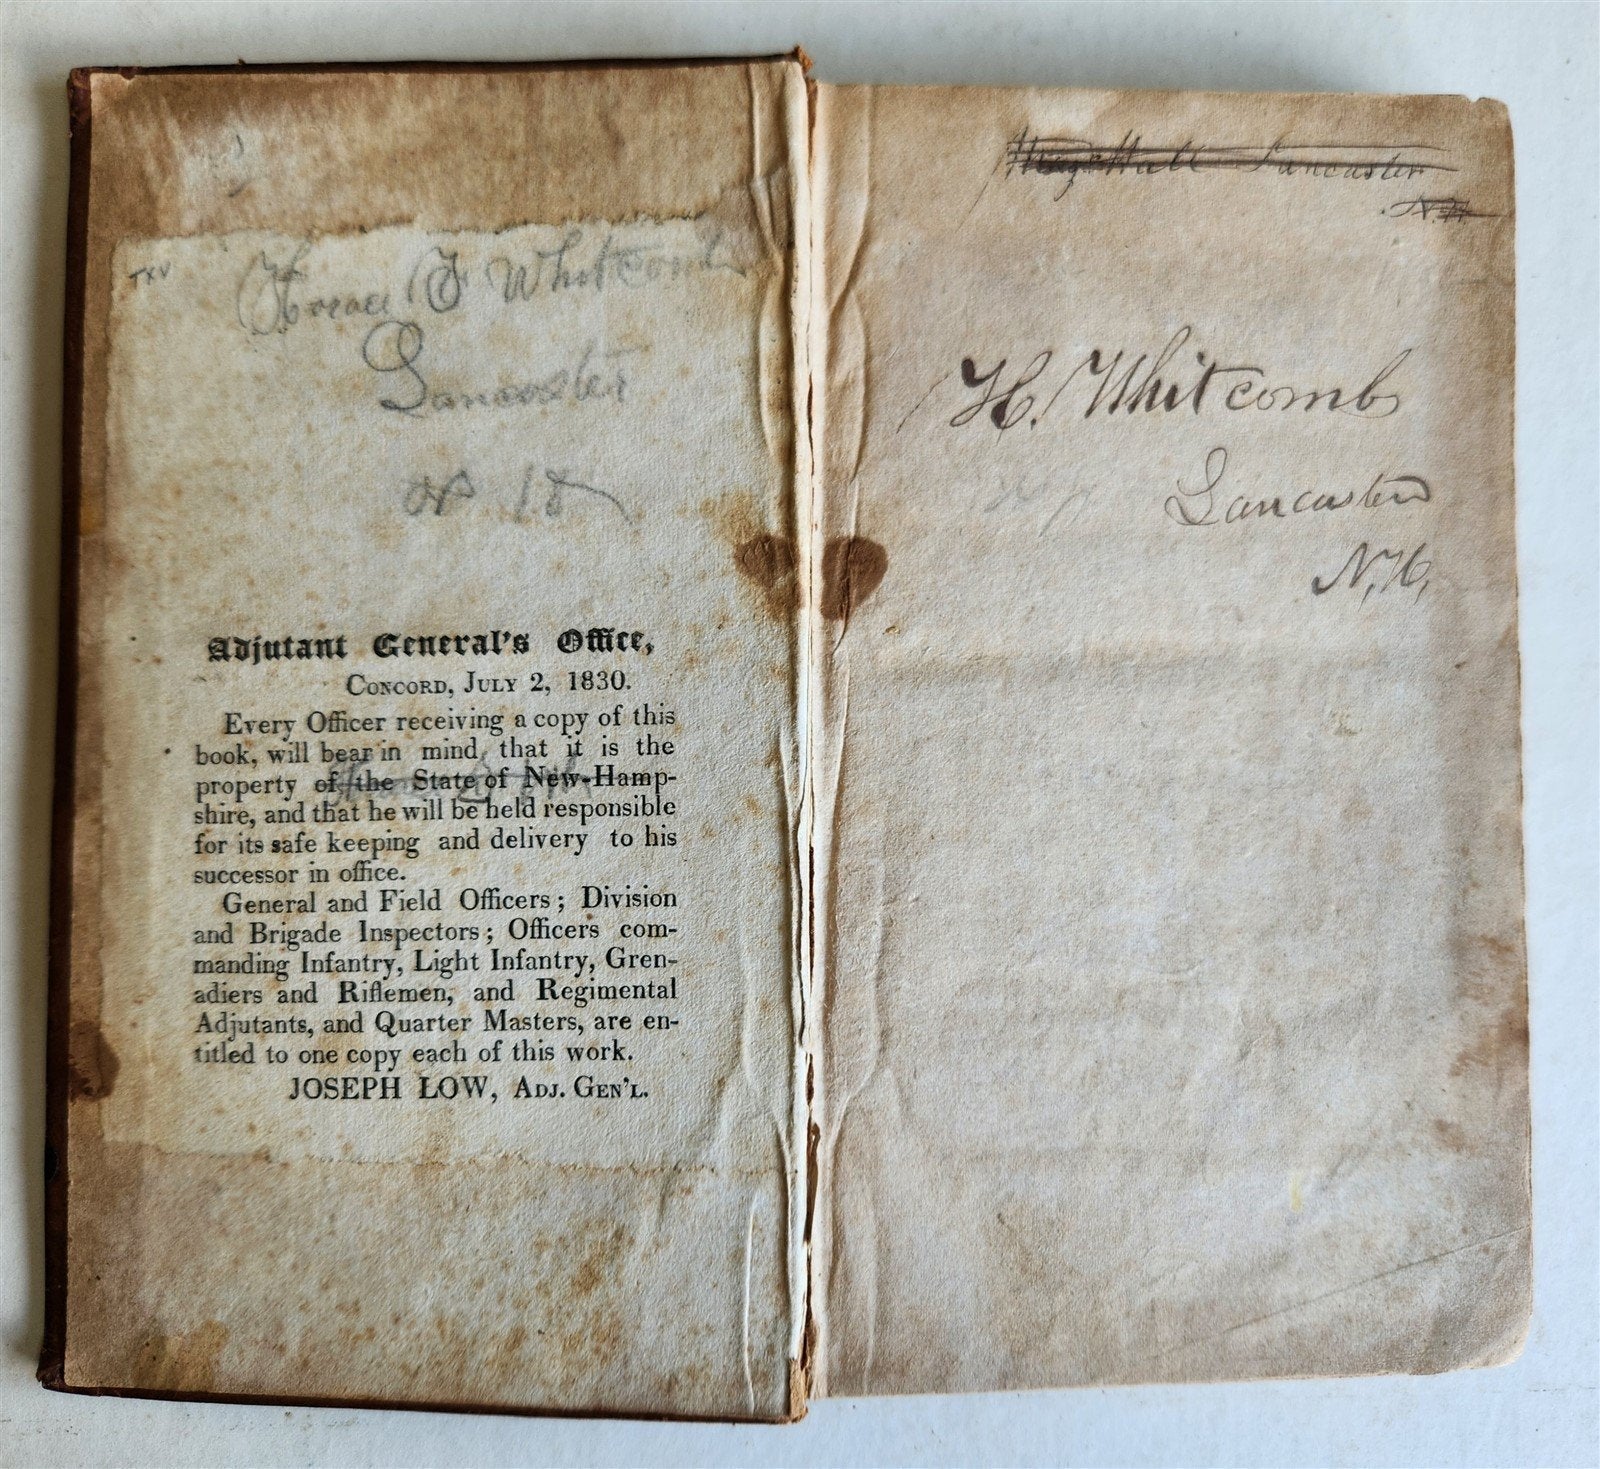 TXV
Horace F Whitcomb
Lancaster
Adjutant General's Office,
Concord, July 2, 1830.
Every Officer receiving a copy of this
book, will bear in mind, that it is the
property of the State of New-Hamp-
shire, and that he will be held responsible
for its safe keeping and delivery to his
successor in office.
General and Field Officers; Division
and Brigade Inspectors; Officers com-
manding Infantry, Light Infantry, Gren-
adiers and Riflemen, and Regimental
Adjutants, and Quarter Masters, are en-
titled to one copy each of this work.
JOSEPH LOW, Adj. Gen'l.
Hall Lancaster
N.H.
H. Whitcomb
Lancaster
N.H.